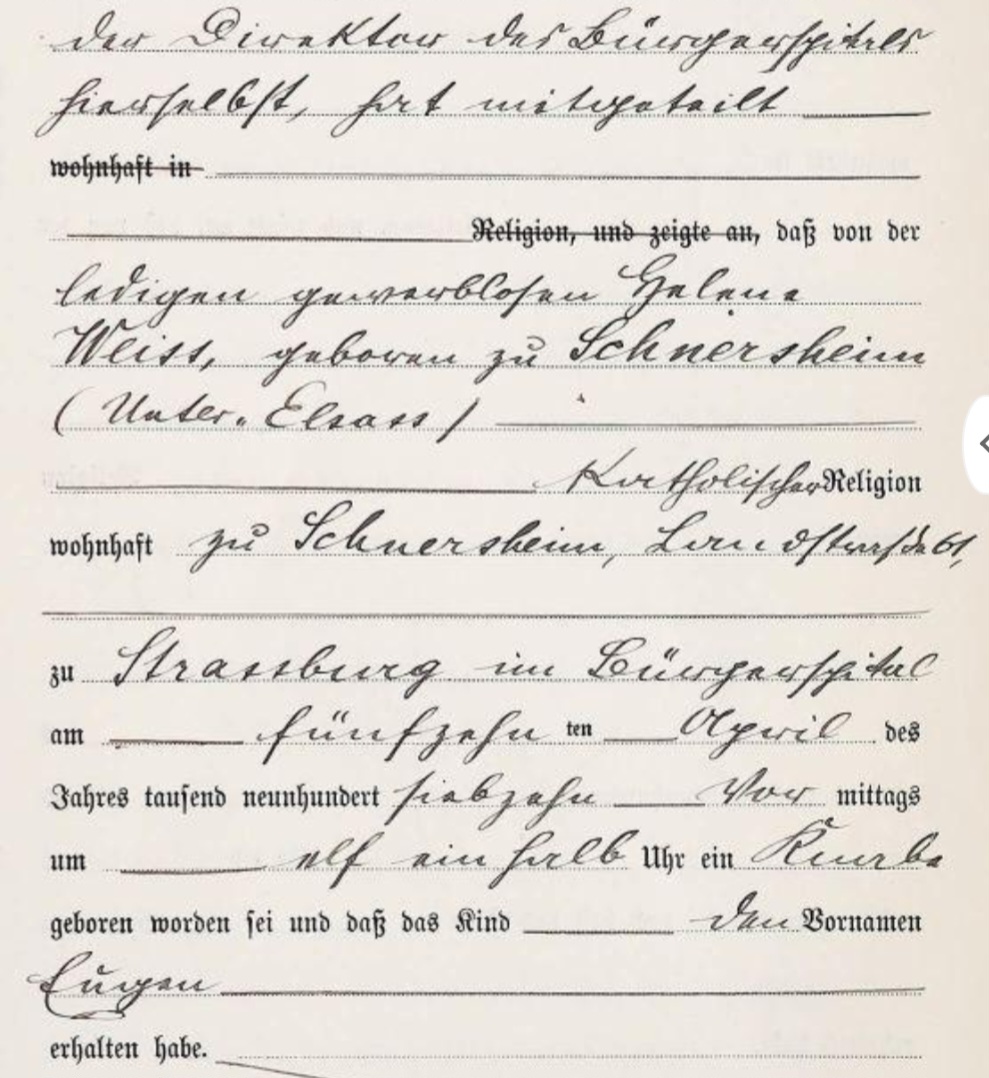 der Direktor des Bürgerspitals
hierselbst, hat mitgeteilt
wohnhaft in
Religion, und zeigte an, daß von der
ledigen gewerblosen Helene
Weiss, geboren zu Schnersheim
(Unter-Elsass)
Katholischer Religion
wohnhaft zu Schnersheim, Landstraße 61,
zu Strassburg im Bürgerspital
am fünfzehn ten April des
Jahres tausend neunhundert siebzehn Vor mittags
um elf ein halb Uhr ein Knabe
geboren worden sei und daß das Kind den Vornamen
Eugen
erhalten habe.